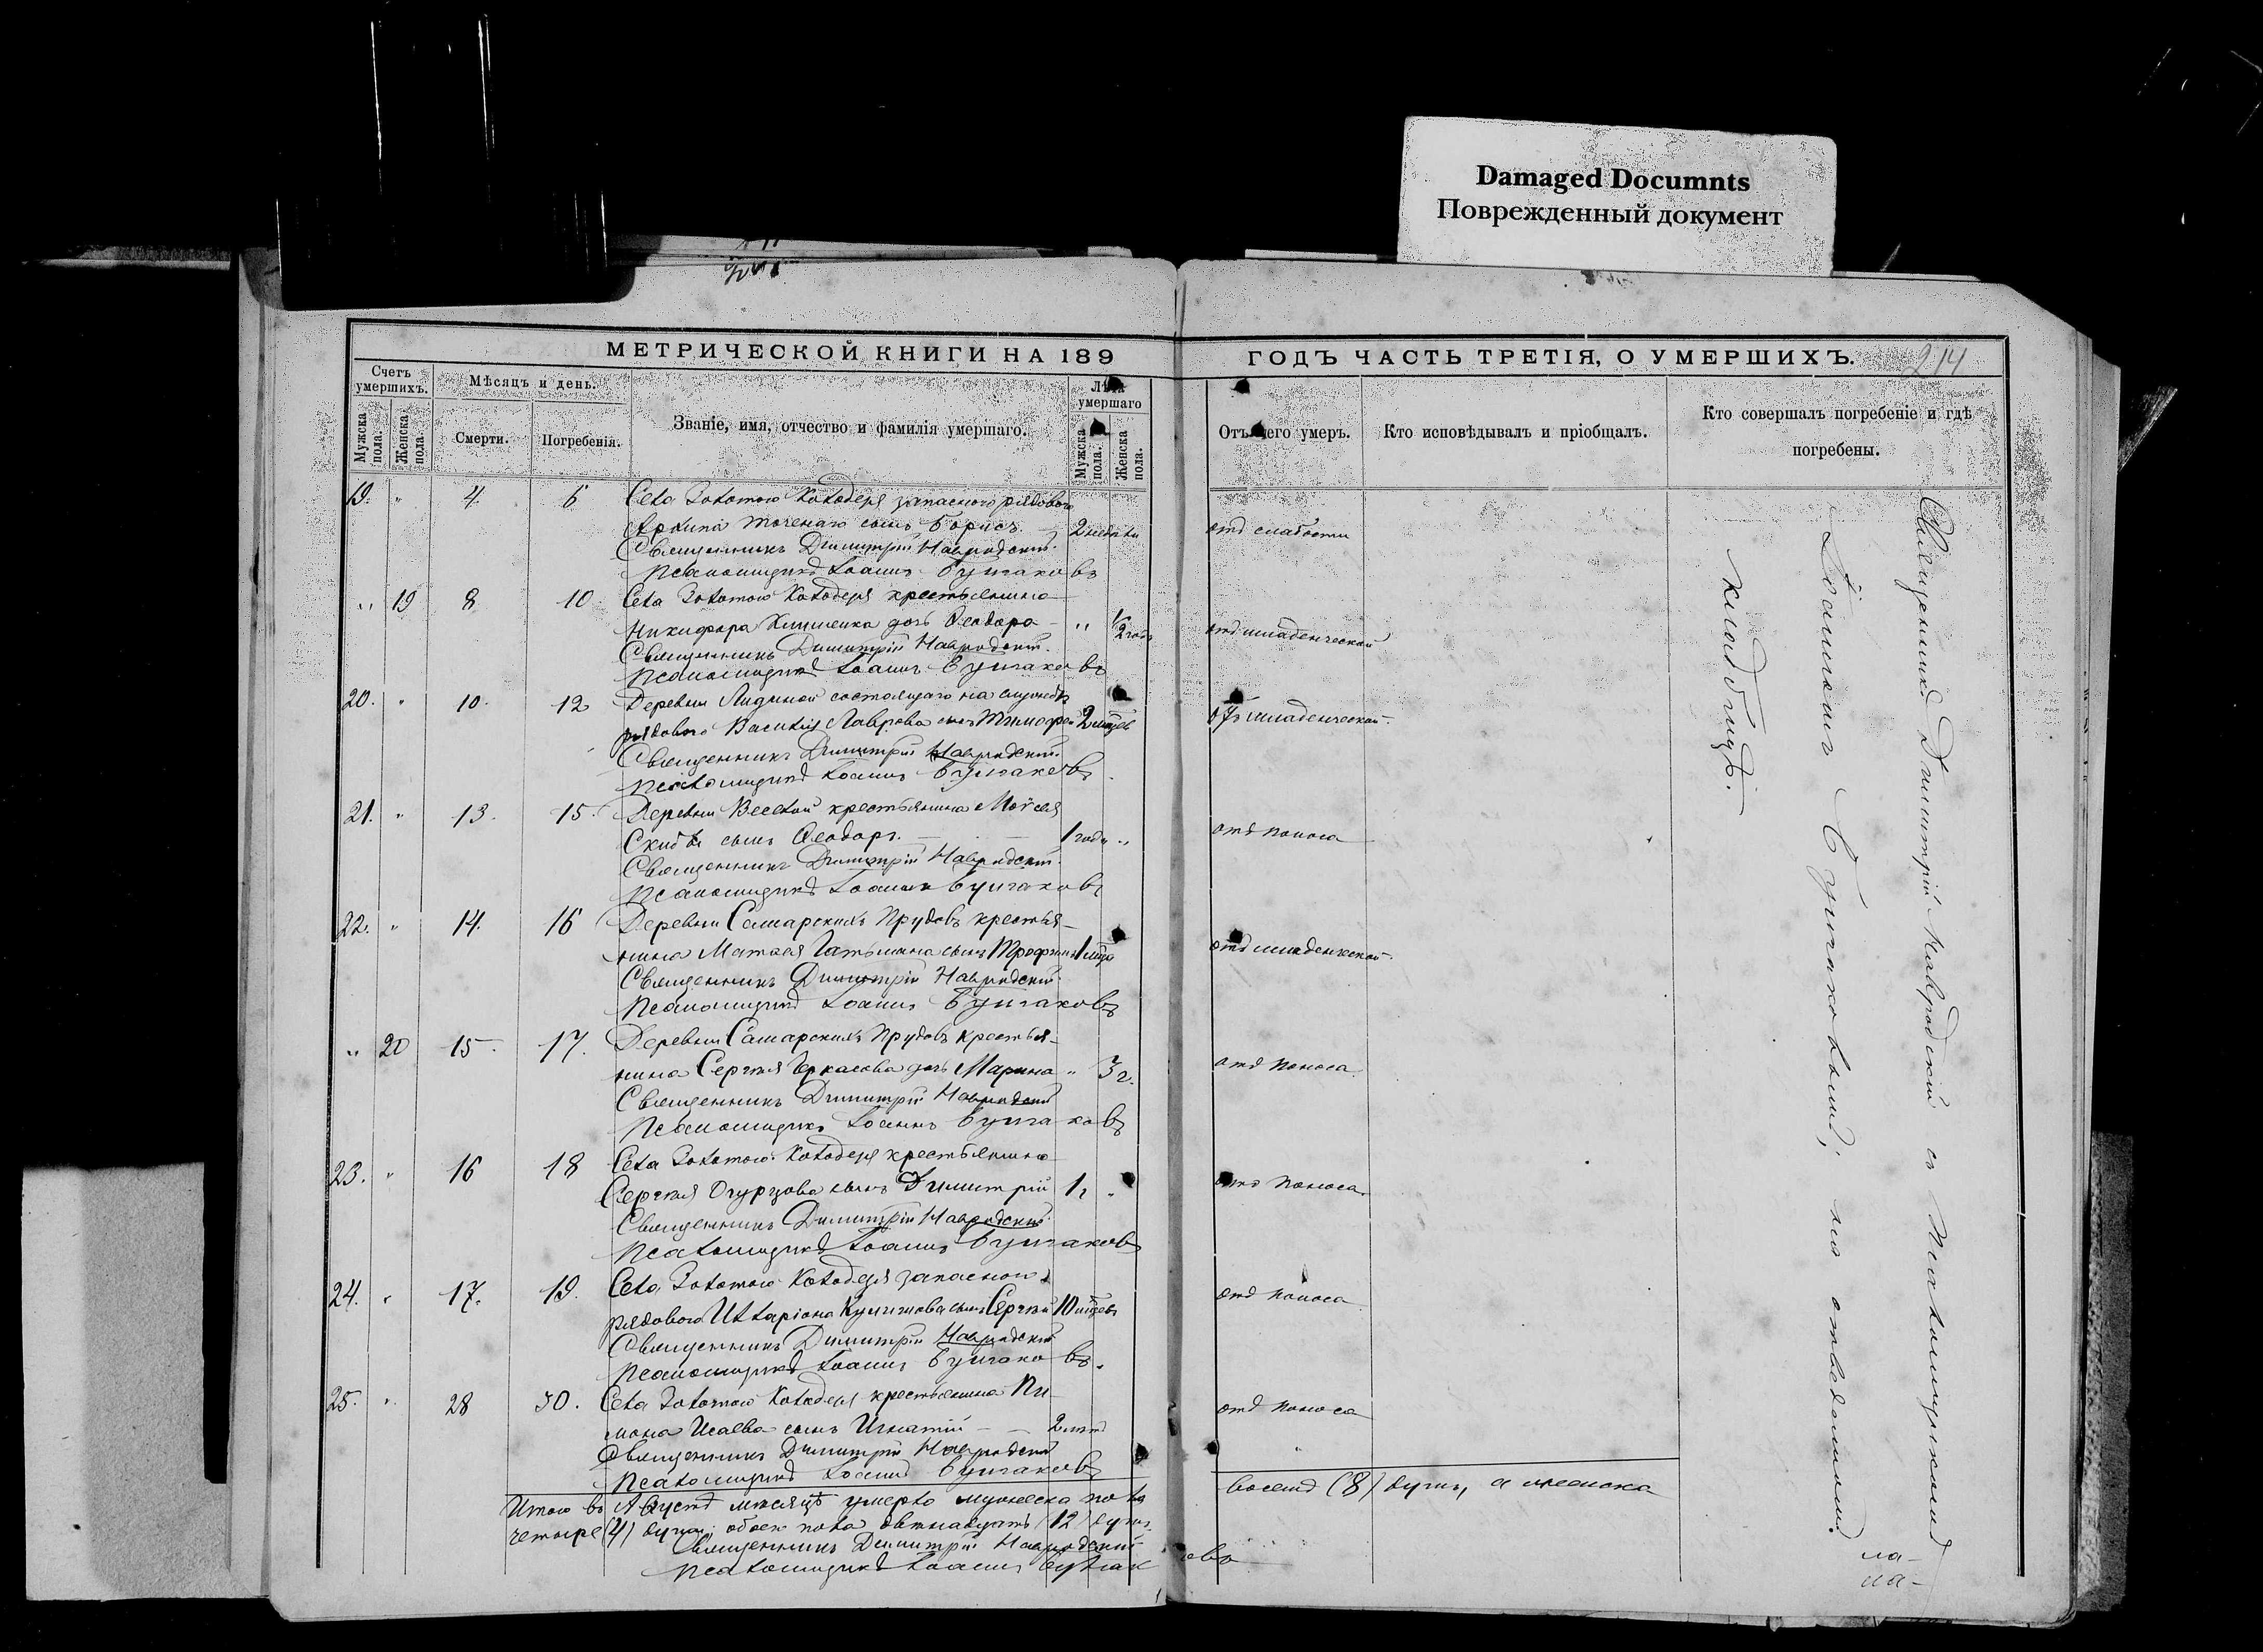 Damaged Documnts
Поврежденный документ
МЕТРИЧЕСКОЙ КНИГИ НА 189
ГОДЪ ЧАСТЬ ТРЕТІЯ, О УМЕРШИХЪ.
214
Счетъ умершихъ.
Мужска пола.
Женска пола.
Мѣсяцъ и день.
Смерти.
Погребенія.
Званіе, имя, отчество и фамилія умершаго.
Лѣта умершаго
Мужска пола.
Женска пола.
Отъ чего умеръ.
Кто исповѣдывалъ и пріобщалъ.
Кто совершалъ погребеніе и гдѣ
погребены.
19. " 4. 6 Села Золотого Колодезя запасного рядового
Архипа сынъ Борисъ. 2 недѣли отъ слабости
Священникъ Димитрій Навродскій.
Псаломщикъ Іоаннъ Булгаковъ
" 19 8 10. Села Золотого Колодезя крестьянина
Никифора Клименка дочь Ѳеодора " 1/2 года отъ младенческой
Священникъ Димитрій Навродскій.
Псаломщикъ Іоаннъ Булгаковъ
20. " 10. 12 Деревни состоящаго на службѣ
рядового Василія Лаврова сынъ Тимофей 2 отъ младенческой.
Священникъ Димитрій Навродскій.
Псаломщикъ Іоаннъ Булгаковъ.
21. " 13. 15. Деревни Веселой крестьянина Моѵсея
Скибы сынъ Ѳеодоръ. 1 годъ " отъ поноса
Священникъ Димитрій Навродскій.
Псаломщикъ Іоаннъ Булгаковъ
22. " 14. 16 Деревни Самарскихъ Прудовъ крестья-
нина Матвея сынъ Трофимъ 1 отъ младенческой.
Священникъ Димитрій Навродскій.
Псаломщикъ Іоаннъ Булгаковъ
" 20 15. 17. Деревни Самарскихъ Прудовъ крестья-
нина Сергѣя Черкасова дочь Марина " 3 г. отъ поноса.
Священникъ Димитрій Навродскій
Псаломщикъ Іоаннъ Булгаковъ
23. " 16 18 Села Золотого Колодезя крестьянина
Сергѣя Огурцова сынъ Димитрій 1 г. " отъ поноса.
Священникъ Димитрій Навродскій.
Псаломщикъ Іоаннъ Булгаковъ
24. " 17. 19. Села Золотого Колодезя запасного
рядового Иларіона сынъ Сергѣй 10 отъ поноса.
Священникъ Димитрій Навродскій
Псаломщикъ Іоаннъ Булгаковъ.
25. " 28 30. Села Золотого Колодезя крестьянина Пи-
мона Исаева сынъ Игнатій 2 лѣтъ отъ поноса
Священникъ Димитрій Навродскій
Псаломщикъ Іоаннъ Булгаковъ
Итого въ Августѣ мѣсяцѣ умерло мужеска пола восемь (8) душъ, а женска
четыре (4) души, обоего пола двѣнадцать (12) душъ.
Священникъ Димитрій Навродскій
Псаломщикъ Іоаннъ Булгаковъ
Священникъ Димитрій Навродскій съ Псаломщикомъ
Іоанномъ Булгаковымъ, на отведенномъ
кладбищѣ.